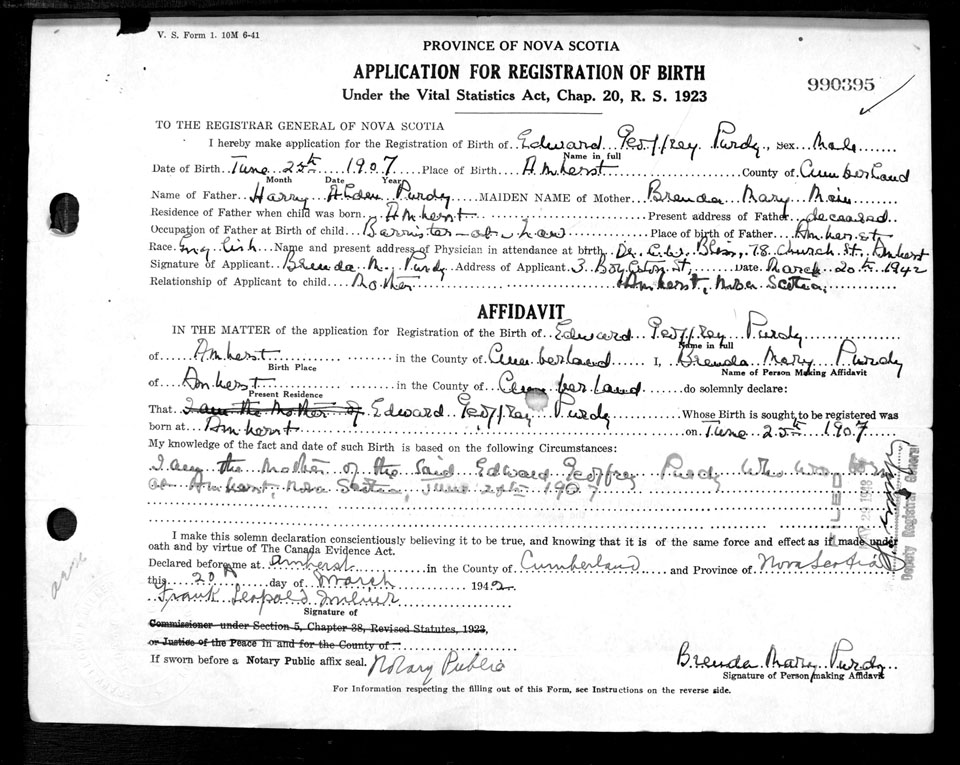 V. S. Form 1. 10M 6-41
PROVINCE OF NOVA SCOTIA
APPLICATION FOR REGISTRATION OF BIRTH
990395
Under the Vital Statistics Act, Chap. 20, R. S. 1923
TO THE REGISTRAR GENERAL OF NOVA SCOTIA
I hereby make application for the Registration of Birth of Edward Geoffrey Purdy, sex Male
Name in full
Date of Birth June 25th 1907 Place of Birth Amherst County of Cumberland
Month Date Year
Name of Father Harry Alden Purdy MAIDEN NAME of Mother Brenda Mary
Residence of Father when child was born Amherst Present address of Father deceased
Occupation of Father at Birth of child Barrister-at-Law Place of birth of Father Amherst
Race English Name and present address of Physician in attendance at birth Dr. C.W. Bliss, 78 Church St, Amherst
Signature of Applicant Brenda M. Purdy Address of Applicant 3 Boylston St, Date March 20th 1942
Relationship of Applicant to child Mother Amherst, Nova Scotia.
AFFIDAVIT
IN THE MATTER of the application for Registration of the Birth of Edward Geoffrey Purdy
Name in full
of Amherst in the County of Cumberland I, Brenda Mary Purdy
Birth Place Name of Person Making Affidavit
of Amherst in the County of Cumberland do solemnly declare:
Present Residence
That I am the Mother of Edward Geoffrey Purdy Whose Birth is sought to be registered was
born at Amherst on June 25th 1907
My knowledge of the fact and date of such Birth is based on the following Circumstances:
I am the Mother of the said Edward Geoffrey Purdy who was born
at Amherst, Nova Scotia, June 25th 1907
FILED
Deputy Registrar General
I make this solemn declaration conscientiously believing it to be true, and knowing that it is of the same force and effect as if made under
oath and by virtue of The Canada Evidence Act.
Declared before me at Amherst in the County of Cumberland and Province of Nova Scotia
this 20th day of March 1942
Frank Leopold Milner
Signature of
Commissioner under Section 5, Chapter 38, Revised Statutes, 1923,
or Justice of the Peace in and for the County of
If sworn before a Notary Public affix seal. Notary Public
Brenda Mary Purdy
Signature of Person making Affidavit
For Information respecting the filling out of this Form, see Instructions on the reverse side.